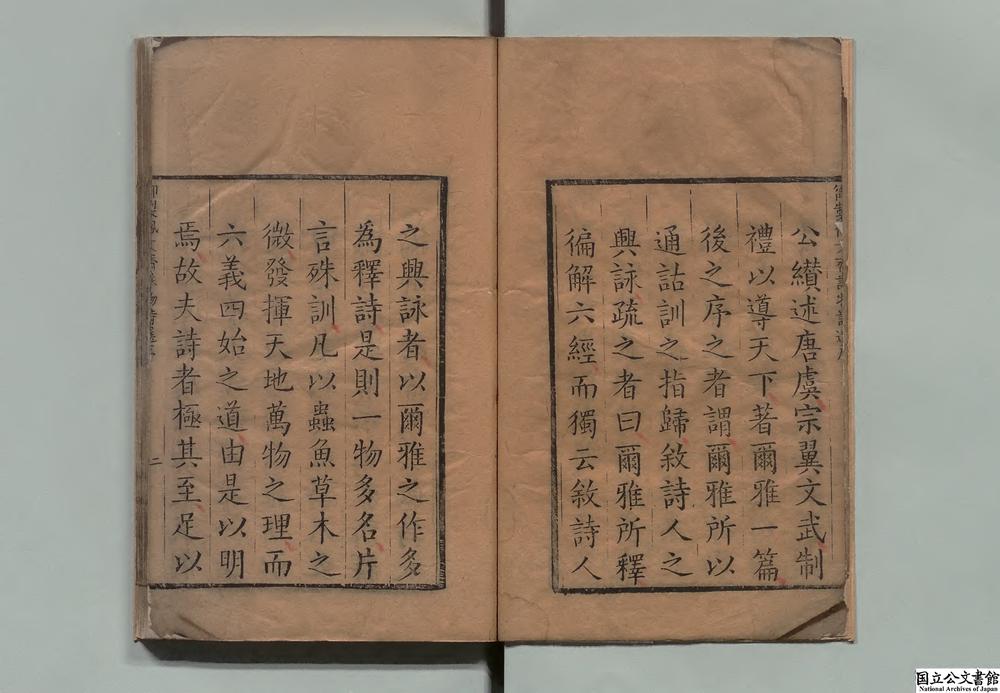 公纘述唐虞宗翼文武制
禮以導天下著爾雅一篇
後之序之者謂爾雅所以
通詁訓之指歸敘詩人之
興詠疏之者曰爾雅所釋
徧解六經而獨云敘詩人
之興詠者以爾雅之作多
為釋詩是則一物多名片
言殊訓凡以蟲魚草木之
微發揮天地萬物之理而
六義四始之道由是以明
焉故夫詩者極其至足以
二
国立公文書館
National Archives of Japan